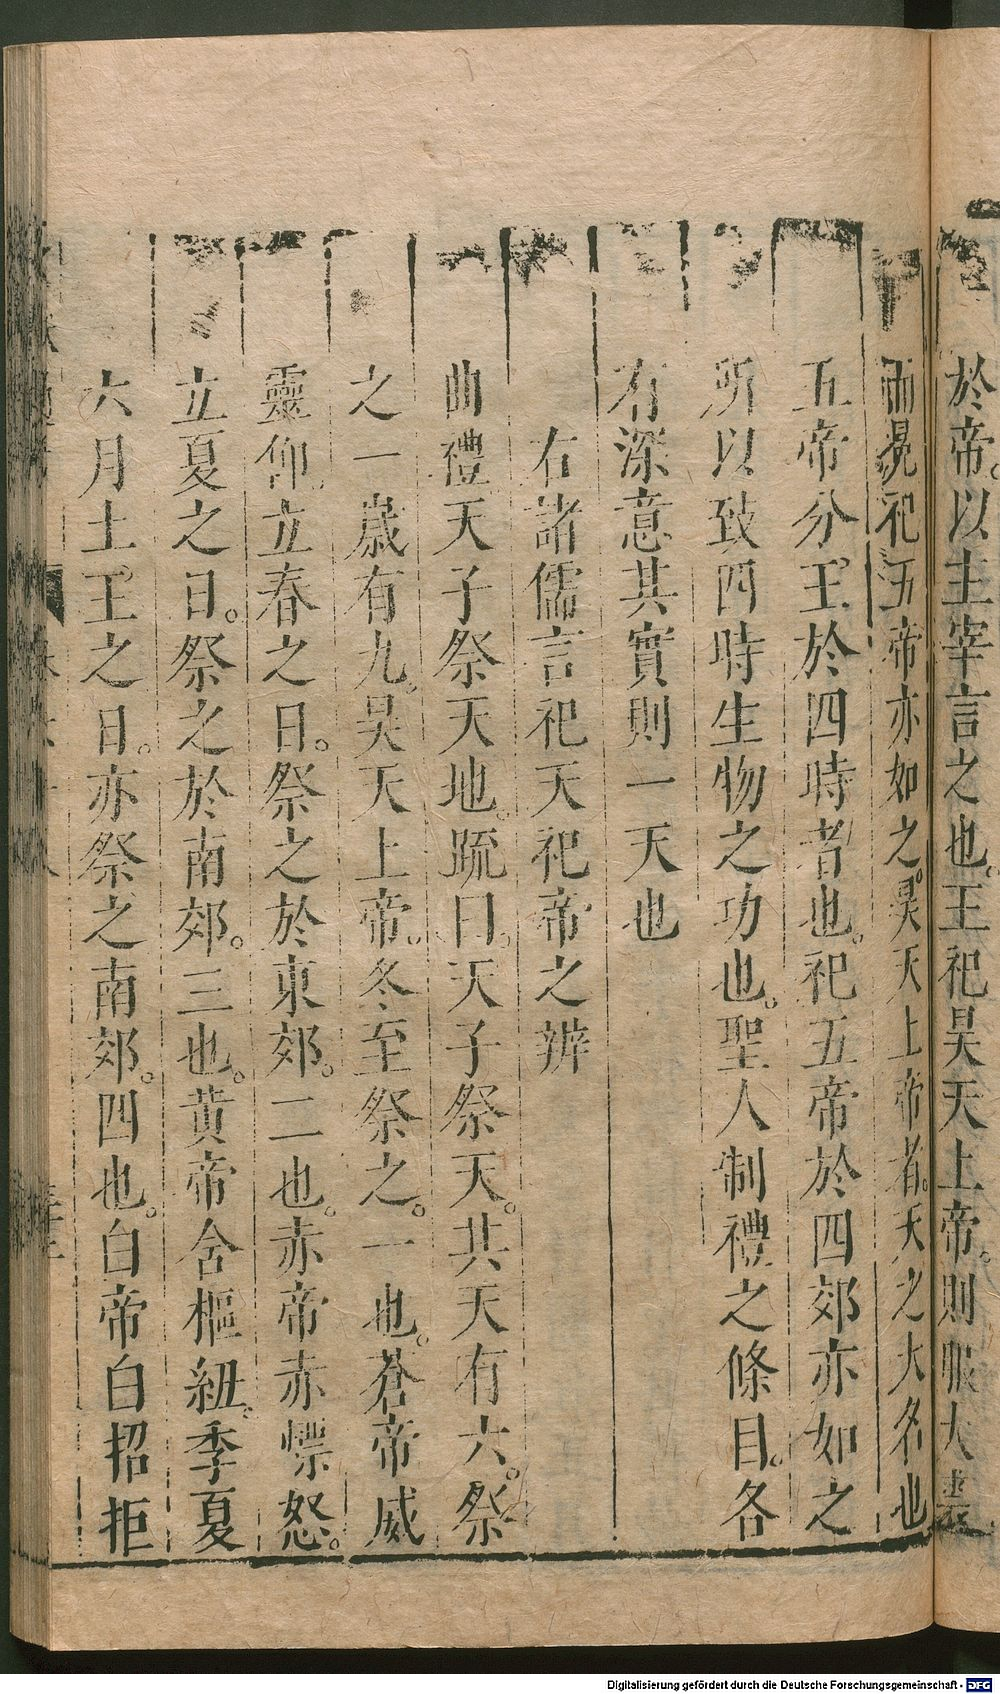 於帝。以主宰言之也。王祀昊天上帝。則服大裘
而冕祀五帝亦如之。昊天上帝者。天之大名也
五帝分王於四時者也。祀五帝於四郊亦如之
所以致四時生物之功也。聖人制禮之條目。各
有深意其實則一天也
右諸儒言祀天祀帝之辨
曲禮天子祭天地。疏曰。天子祭天。其天有六。祭
之一歲有九。昊天上帝。冬至祭之。一也。蒼帝威
靈仰立春之日。祭之於東郊。二也。赤帝赤熛怒。
立夏之日。祭之於南郊。三也。黄帝含樞紐。季夏
六月土王之日。亦祭之南郊。四也。白帝白招拒
Digitalisierung gefördert durch die Deutsche Forschungsgemeinschaft - DFG